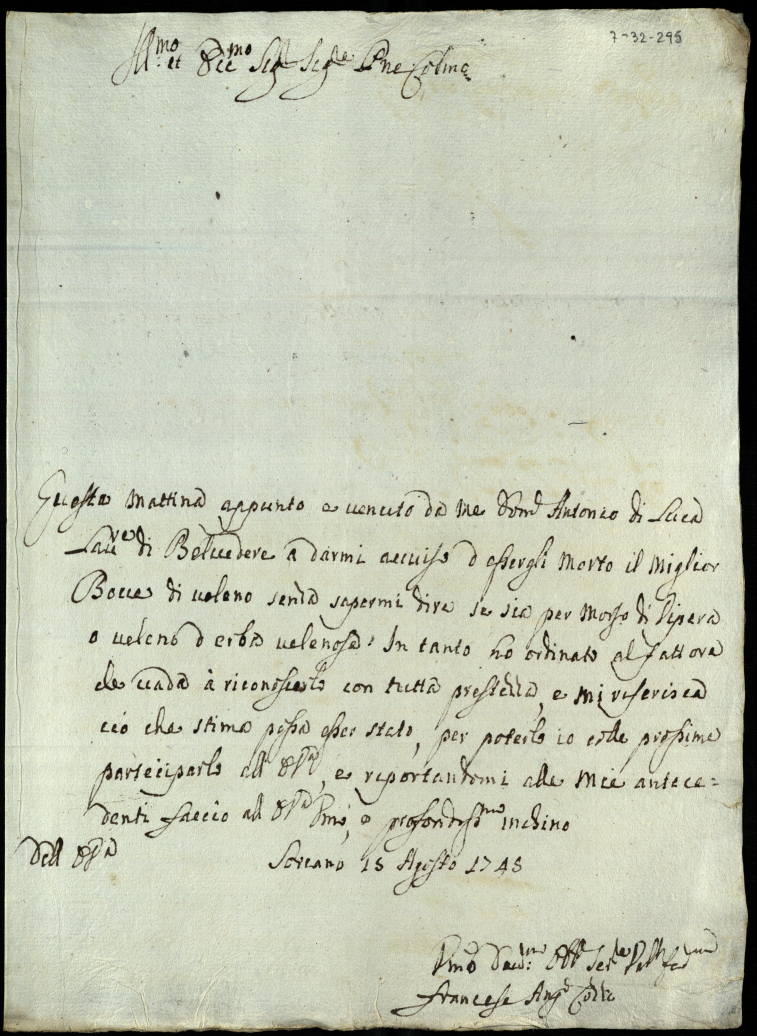 7-32-295
Ill.mo et Ecc.mo Sig.r Sig.re Pne Col.mo
Questa Mattina appunto è venuto da me Dom.o Antonio di Luca
Lau.re di Belvedere a darmi avviso d essergli Morto il Miglior
Bove di veleno senza sapermi dire se sia per Morso di Vipera
o veleno d erba velenosa. In tanto ho ordinato al Fattore
che vada à riconoscerlo con tutta prestezza, e mi riferisca
ciò che stima possa esser stato, per poterlo io colle prossime
parteciparlo all E.V., e riportandomi alle Mie antece=
denti faccio all E.V. Pmo, e profondiss.mo inchino
Dell E.V.
Soriano 15 Agosto 1745
Um.o Dev.mo Obb. Ser.re
Francesc Ang.o